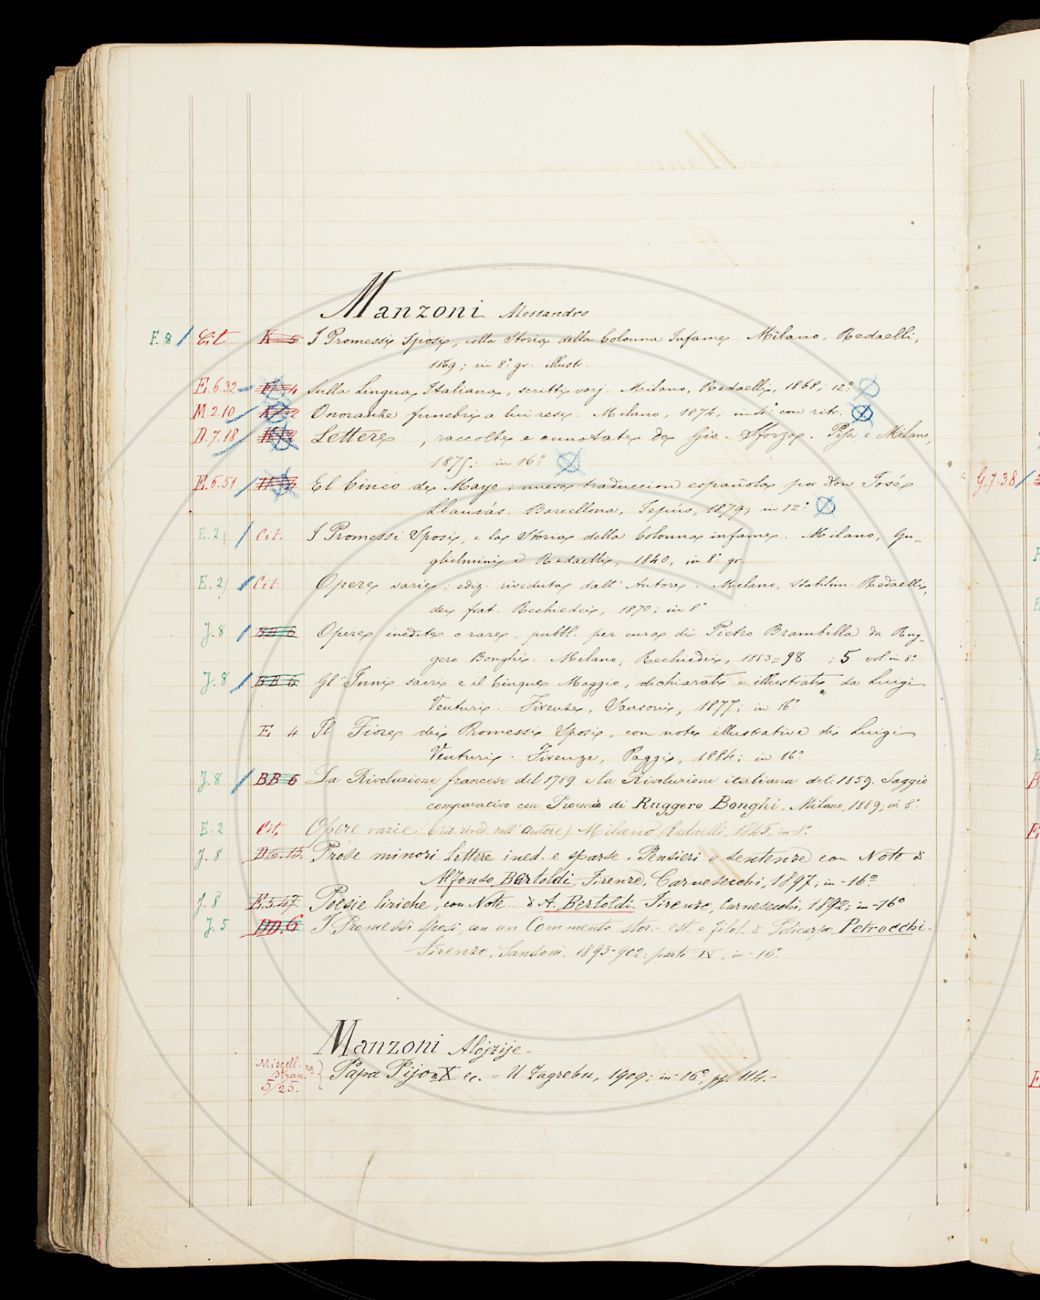 Manzoni Alessandro
F. 8 / Cit K 5 I Promessi Sposi, colla Storia della Colonna Infame. Milano, Redaelli,
1869; in 8.° gr. illustr.
E. 6.32 4 Sulla Lingua Italiana, scritti varj. Milano, Redaelli, 1868; 12.°
M 2.10 / Onoranze funebri a lui rese. Milano, 1874; in 4.° con ritr.
D. 7.18 Lettere, raccolte e annotate da Gio. Sforza. Pisa e Milano,
1875; in 16.°
E. 6.51 / El Cinco de Mayo; nueva traduccion española por Don José
Llausás. Barcellona, Tepús, 1879; in 12.°
E. 2 / Cit. I Promessi Sposi, e la Storia della Colonna infame. Milano, Gu-
glielmini e Redaelli, 1840, in 8.° gr.
E. 2 / Cit. Opere varie; ediz. riveduta dall'Autore. Milano, Stabilim. Redaelli,
dei frat. Rechiedei, 1870; in 8.°
J. 8 / BB 6 Opere inedite o rare, pubbl. per cura di Pietro Brambilla da Rug-
gero Bonghi. Milano, Rechiedei, 1883=98; 5 vol in 8.°
J. 8 / BB 6 Gl'Inni sacri e il Cinque Maggio, dichiarati e illustrati da Luigi
Venturi. Firenze, Sansoni, 1877; in 16.°
E 4 Il Fiore dei Promessi Sposi, con note illustrative di Luigi
Venturi. Firenze, Paggi, 1884; in 16.°
J. 8 / BB 6 La Rivoluzione francese del 1789 e la Rivoluzione italiana del 1859. Saggio
comparativo con Proemio di Ruggero Bonghi. Milano, 1889; in 8.°
E. 2 Cit. Opere varie (ediz. rived. dall'autore) Milano, Redaelli, 1845, in 8.°
J. 8 Prose minori Lettere ined. e sparse. Pensieri e sentenze con Note di
Alfonso Bertoldi. Firenze, Carnesecchi, 1897; in-16°
J. 8 E.5.47. Poesie liriche, con Note di A. Bertoldi. Firenze, Carnesecchi, 1892; in-16°
J. 5 DD. 6 I Promessi Sposi, con un Commento stor. est. e filol. di Policarpo Petrocchi.
Firenze, Sansoni, 1893-902: parti IV, in-16.°
Manzoni Alojzije.
Miscell. stran. 5/25. Papa Pijo X ec. = U Zagrebu, 1909; in 16.° pp. 114.
G. 7.38 /